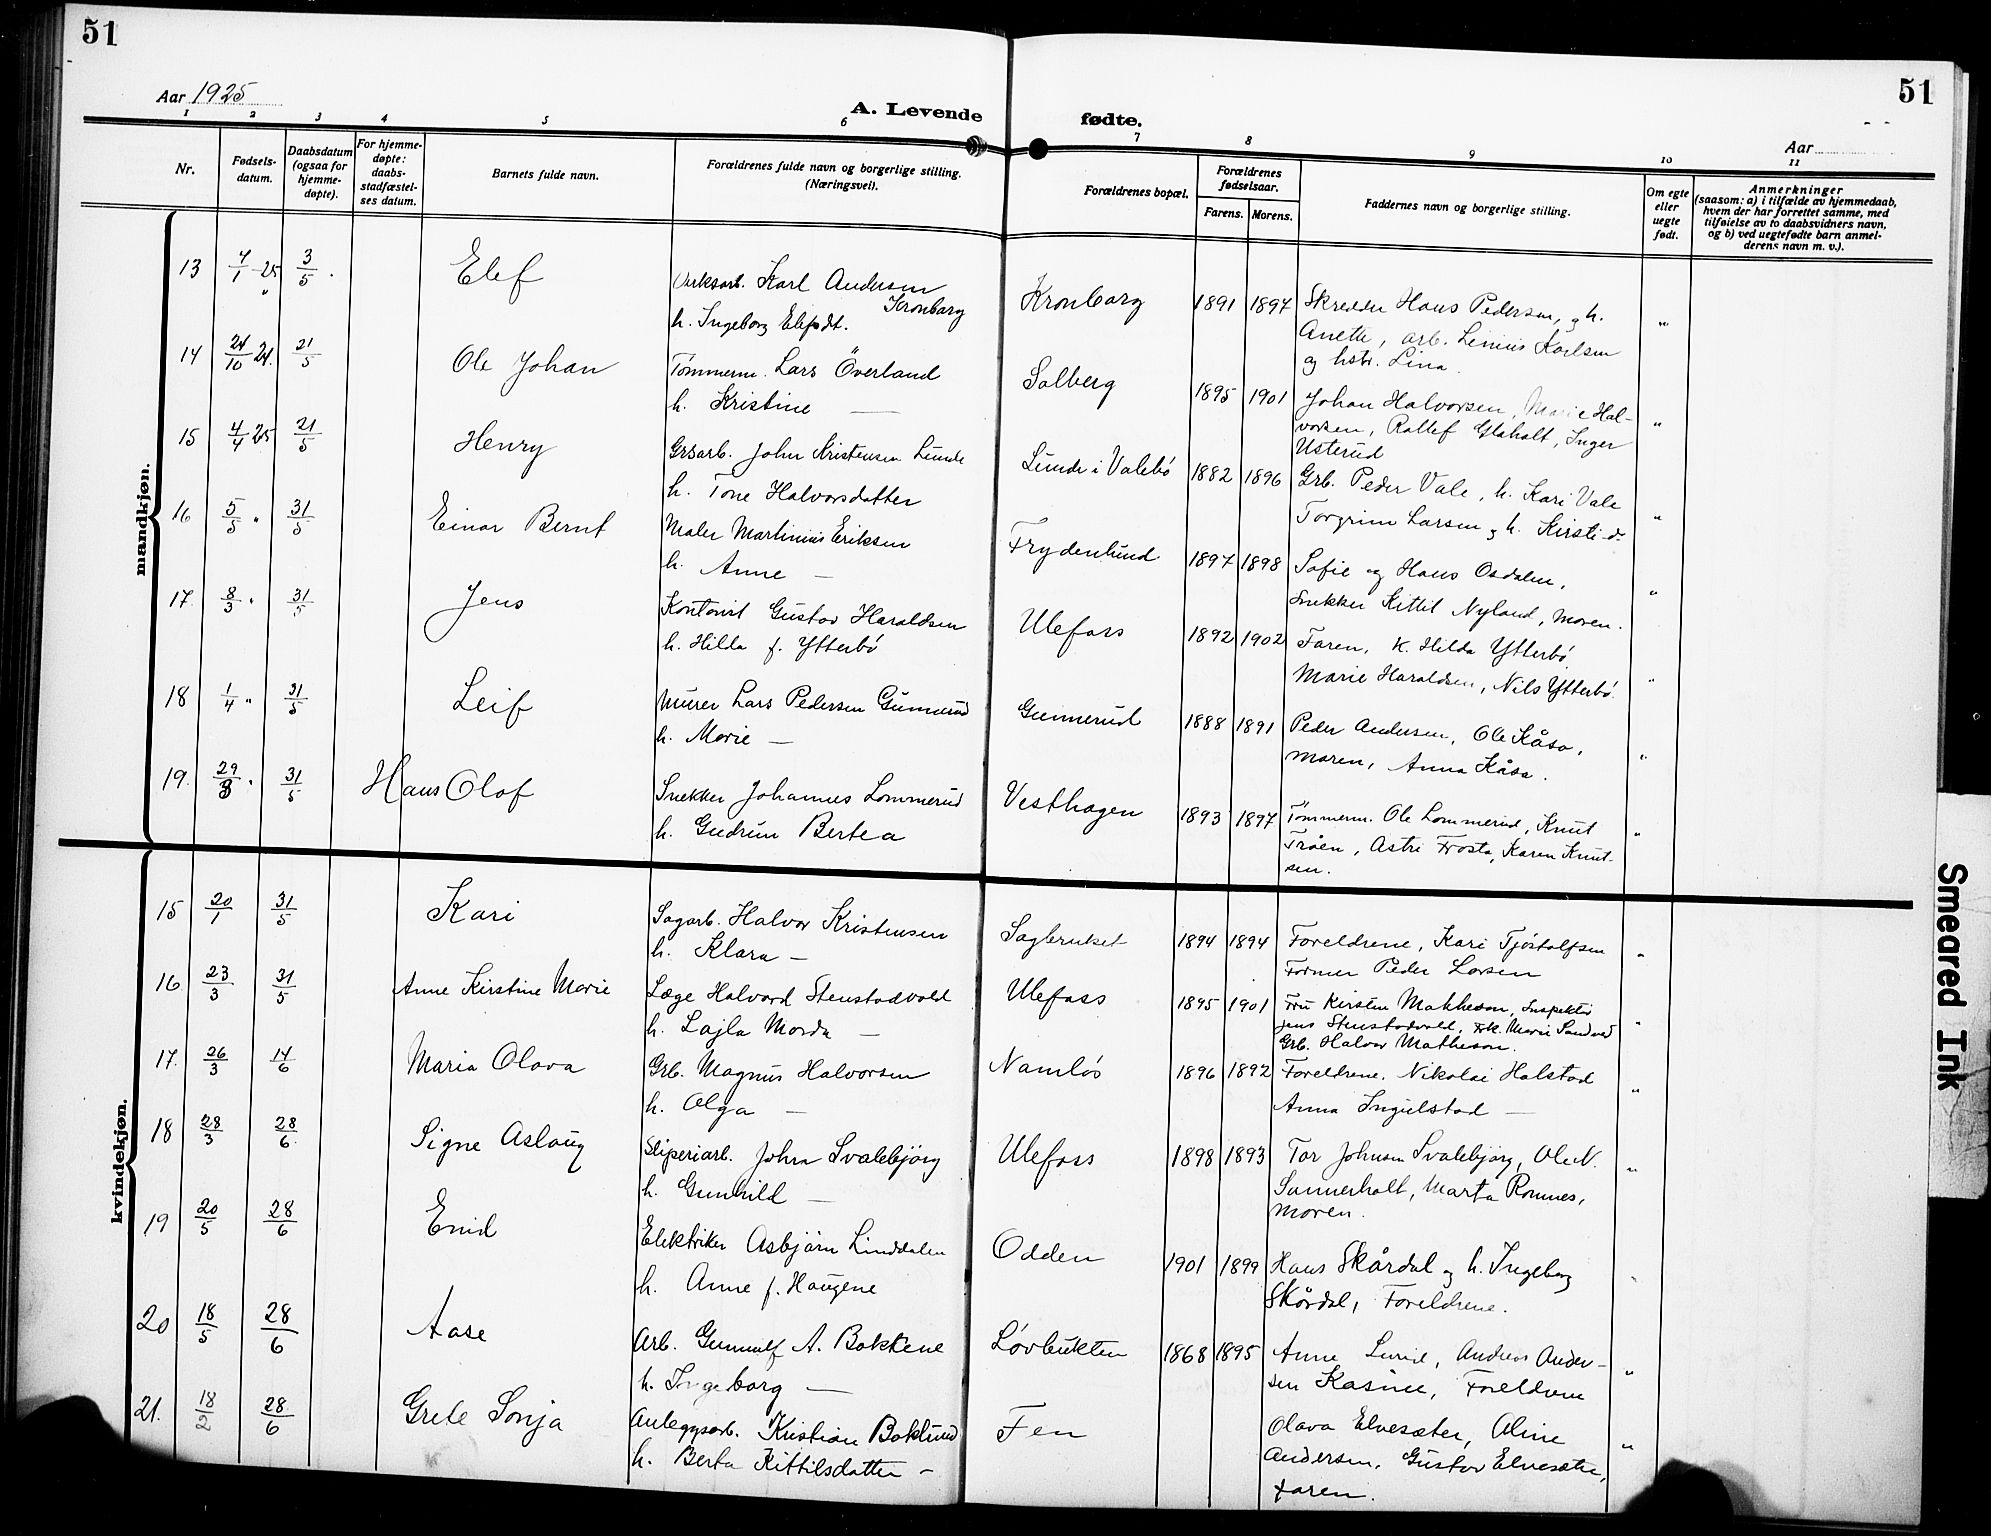 51
51
Aar 1925
A. Levende fødte.
Aar
1 2 3 4 5 6 7 8 9 10 11
Nr.
Fødsels-
datum.
Daabsdatum
(ogsaa for
hjemme-
døpte).
For hjemme-
døpte:
daabs-
stadfæstel-
ses datum.
Barnets fulde navn.
Forældrenes fulde navn og borgerlige stilling.
(Næringsvei).
Forældrenes bopæl.
Forældrenes
fødselsaar.
Farens. Morens.
Faddernes navn og borgerlige stilling.
Om egte
eller
uegte
født.
Anmerkninger
(saasom: a) i tilfælde av hjemmedaab,
hvem der har forrettet samme, med
tilføielse av to daabsvidners navn,
og b) ved uegtefødte barn anmel-
derens navn m. v.).
mandkjøn.
13 3/5 Elef Karl Andersen Kronborg 1891 1897 Skredder Hans Pedersen, og h.
h. Ingeborg Elefsdt. Kronborg Anette, arb. Linius Karlsen
og hstr. Lina.
14 24/10 24. 21/5 Ole Johan Tømmerm. Lars Överland Solberg 1895 1901 Johan Halvorsen, Marie Hal-
h. Kristine — vorsen, Rollef Glaholt, Inger
Usterud
15 4/4 25 21/5 Henry Grsarb. John Kristensen Lunde Lunde i Valebø 1882 1896 Grb. Peder Vale, h. Kari Vale
h. Tone Halvorsdatter Torgrim Larsen og h. Kirsti d.
16 5/5 " 31/5 Einar Bernt Maler Martinius Eriksen Frydenlund 1897 1898 Sofie og Hans Osdalen,
h. Anne — Snekker Kittil Nyland, Moren.
17. 8/3 " 31/5 Jens Kontorist Gustav Haraldsen Ulefoss 1892 1902 Faren, K. Hilda Ytterbø
h. Hilda f. Ytterbø Marie Haraldsen, Nils Ytterbø.
18 1/4 " 31/5 Leif Murer Lars Pedersen Gunnerud Gunnerud 1888 1891 Peder Andersen, Ole Kåsa,
h. Marie — Moren, Anna Kåsa.
19. 29/3 " 31/5 Hans Olaf Snekker Johannes Lommerud Vesthagen 1893 1897 Tømmerm. Ole Lommerud, Knut
h. Gudrun Bertea Tråen, Astri Frosta, Karen Knut-
sen.
kvindekjøn.
15 20/1 31/5 Kari Sagarb. Halvor Kristensen Sagbruket 1894 1894 Foreldrene, Kari Tjóstolfsen
h. Klara — Former Peder Larsen
16 23/3 31/5 Anne Kirstine Marie Læge Halvard Stenstadvold Ulefoss 1895 1901 Fru Kirsten Matheson, Inspektør
h. Lajla Mordu — Jens Stenstadvold, Frk. Marie Sandved
Grb. Halvor Matheson.
17. 26/3 14/6 Maria Olava Grb. Magnus Halvorsen Namløs 1896 1892 Foreldrene. Nikolai Halstad
h. Olga — Anna Ingulstad —
18 28/3 28/6. Signe Aslaug Sliperiarb. John Svalebjörg Ulefoss 1898 1893 Tor Johnsen Svalebjörg, Ole N.
h. Gunhild — Sannerholt, Marta Romnes,
Moren.
19 20/5 28/6 Enid Elektriker Asbjörn Linddalen Odden 1901 1899 Hans Skårdal og h. Ingeborg
h. Anne f. Haugene Skårdal, Foreldrene.
20 18/5 28/6 Aase Arb. Gunnulf A. Bakkene Løvbukten 1868 1895 Anne Lurid, Andreas Ander-
h. Ingeborg — sen Kasine, Foreldrene
21. 18/2 28/6 Grete Sonja Anleggsarb. Kristian Boklund Fen Olava Elvesæter, Aline
h. Berta Kittilsdatter — Andersen, Gustav Elvesæter,
Faren.
Smeared Ink